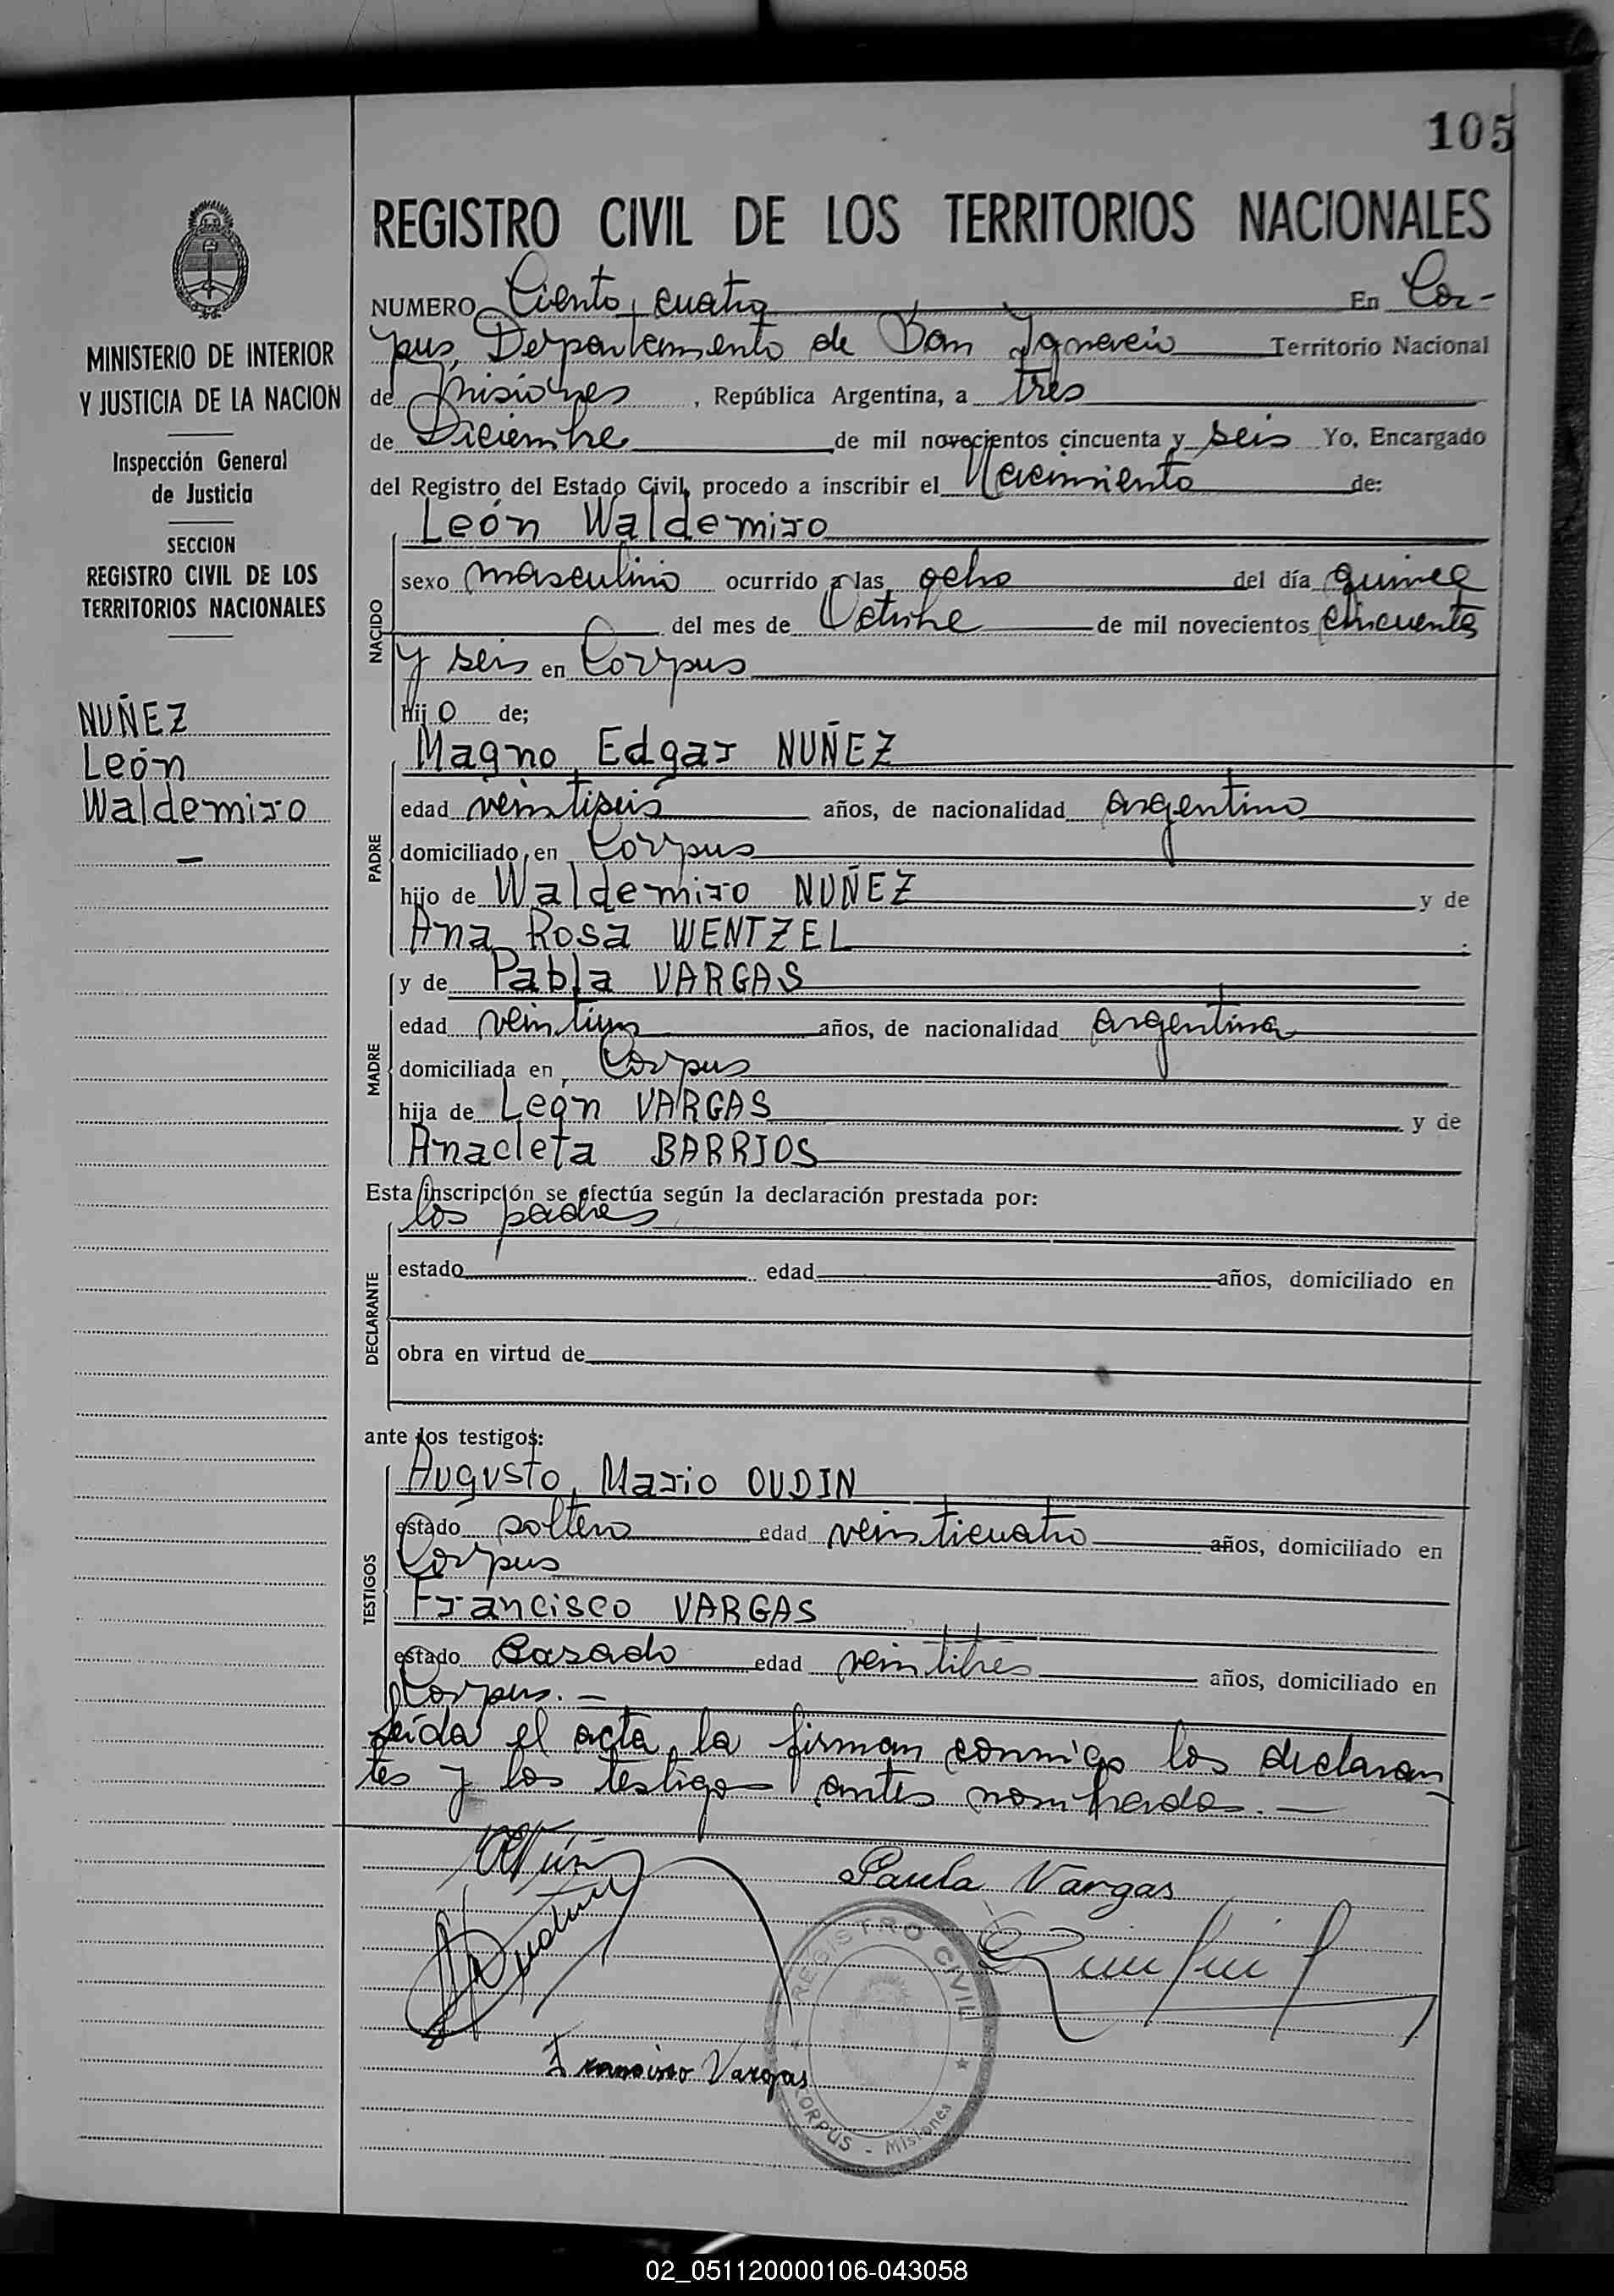 105
REGISTRO CIVIL DE LOS TERRITORIOS NACIONALES
MINISTERIO DE INTERIOR
Y JUSTICIA DE LA NACION
Inspección General
de Justicia
SECCION
REGISTRO CIVIL DE LOS
TERRITORIOS NACIONALES
NUÑEZ
León
Waldemiro
NUMERO Ciento cuatro En Cor-
pus, Departamento de San Ignacio Territorio Nacional
de Misiones, República Argentina, a tres
de Diciembre de mil novecientos cincuenta y seis Yo, Encargado
del Registro del Estado Civil, procedo a inscribir el Nacimiento de:
León Waldemiro
NACIDO
sexo masculino ocurrido a las ocho del día quince
del mes de Octubre de mil novecientos cincuenta
y seis en Corpus
hijo de;
Magno Edgar NUÑEZ
PADRE
edad veintiseis años, de nacionalidad argentino
domiciliado en Corpus
hijo de Waldemiro NUÑEZ y de
Ana Rosa WENTZEL
y de Pabla VARGAS
MADRE
edad veintiun años, de nacionalidad argentina
domiciliada en Corpus
hija de León VARGAS y de
Anacleta BARRIOS
Esta inscripción se efectúa según la declaración prestada por:
los padres
DECLARANTE
estado edad años, domiciliado en
obra en virtud de
ante los testigos:
Augusto Mario OUDIN
TESTIGOS
estado soltero edad veinticuatro años, domiciliado en
Corpus
Francisco VARGAS
estado Casado edad veintitres años, domiciliado en
Corpus.-
Leída el acta, la firman conmigo los declaran
tes y los testigos antes nombrados.-
Paula Vargas
Francisco Vargas
REGISTRO CIVIL
CORPUS - Misiones
02_051120000106-043058